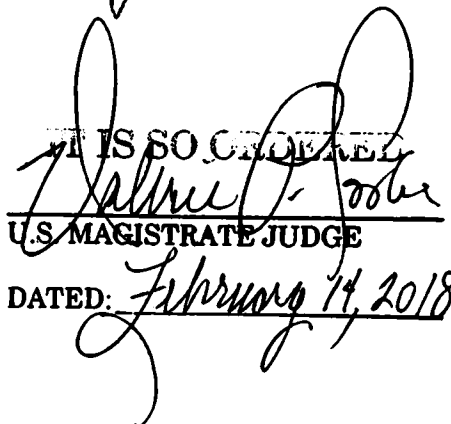 IT IS SO ORDERED
Valerie P. Cooke
U.S. MAGISTRATE JUDGE
DATED: February 14, 2018